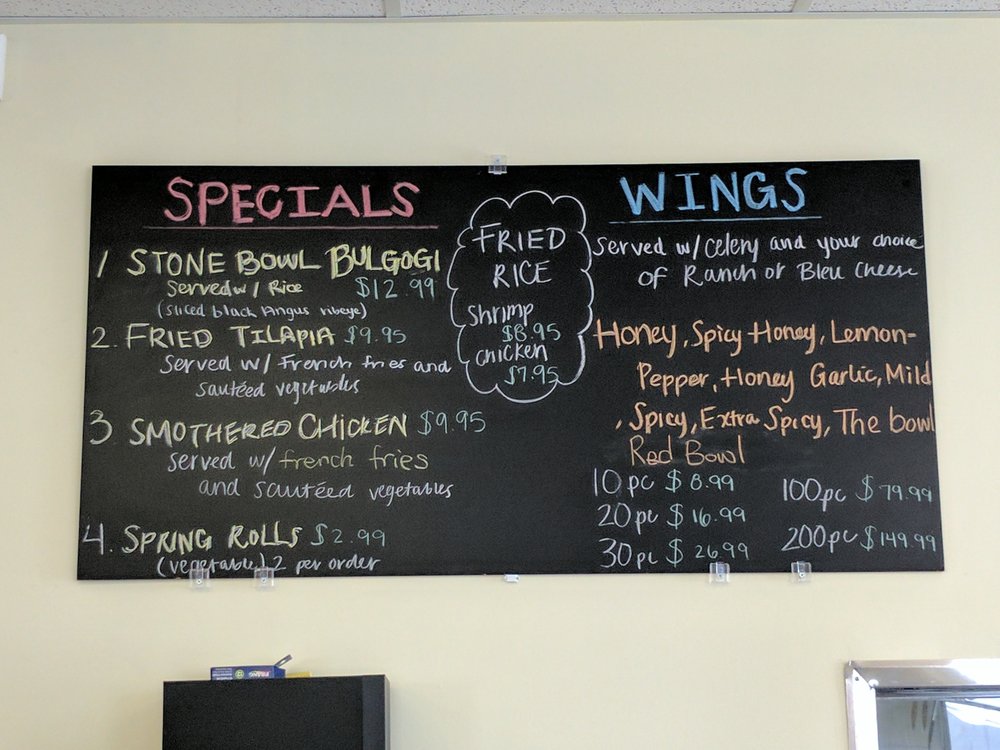 SPECIALS
1 STONE BOWL BULGOGI
Served w/ Rice $12.99
(sliced black Angus ribeye)
2. FRIED TILAPIA $9.95
Served w/ French fries and
sautéed vegetables
3 SMOTHERED CHICKEN $9.95
Served w/ french fries
and sautéed vegetables
4. SPRING ROLLS $2.99
(vegetable) 2 per order
FRIED
RICE
Shrimp
$8.95
Chicken
$7.95
WINGS
Served w/ celery and your choice
of Ranch or Bleu Cheese
Honey, Spicy Honey, Lemon-
Pepper, Honey Garlic, Mild
, Spicy, Extra Spicy, The bowl
Red Bowl
10 pc $8.99
20 pc $16.99
30 pc $26.99
100 pc $79.99
200 pc $149.99